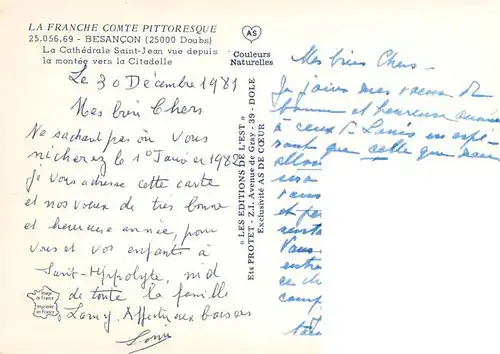 LA FRANCHE COMTE PITTORESQUE
25.056.69 - BESANÇON (25000 Doubs)
La Cathédrale Saint-Jean vue depuis
la montée vers la Citadelle
AS
Couleurs
Naturelles
Le 30 Décembre 1981
Mes bien Chers
Ne sachant pas où vous
nicherez le 1° Janvier 1982
je vous adresse cette carte
et nos voeux de très bonne
et heureuse année, pour
vous et vos enfants à
Saint-Hippolyte, nid
de toute la famille
Lamy. Affectueux baisers
Louis
Image
de France
Imprimée
en France
« LES EDITIONS DE L'EST »
Ets PROTET - Z.I. Avenue de Gray - 39 - DOLE
Exclusivité AS DE CŒUR
Mes biens Chers -
Je joins mes voeux de
bonne et heureuse année
à ceux de Louis en espé-
rant que celle que nous
allons
sera
vous
et
Vous
entre
ce
comp